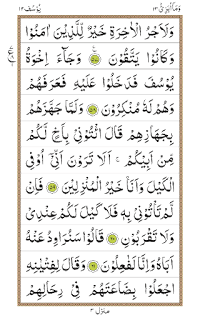 وما ابرئ ۱۳
يوسف ۱۲
وَلَاَجْرُ الْاٰخِرَةِ خَيْرٌ لِّلَّذِيْنَ اٰمَنُوْا
وَكَانُوْا يَتَّقُوْنَ ۝۵۷ وَجَآءَ اِخْوَةُ
يُوْسُفَ فَدَخَلُوْا عَلَيْهِ فَعَرَفَهُمْ
وَهُمْ لَهٗ مُنْكِرُوْنَ ۝۵۸ وَلَمَّا جَهَّزَهُمْ
بِجَهَازِهِمْ قَالَ ائْتُوْنِيْ بِاَخٍ لَّكُمْ
مِّنْ اَبِيْكُمْ ۚ اَلَا تَرَوْنَ اَنِّيْۤ اُوْفِي
الْكَيْلَ وَاَنَا خَيْرُ الْمُنْزِلِيْنَ ۝۵۹ فَاِنْ
لَّمْ تَاْتُوْنِيْ بِهٖ فَلَا كَيْلَ لَكُمْ عِنْدِيْ
وَلَا تَقْرَبُوْنِ ۝۶۰ قَالُوْا سَنُرَاوِدُ عَنْهُ
اَبَاهُ وَاِنَّا لَفٰعِلُوْنَ ۝۶۱ وَقَالَ لِفِتْيٰنِهِ
اجْعَلُوْا بِضَاعَتَهُمْ فِيْ رِحَالِهِمْ
منزل ۳